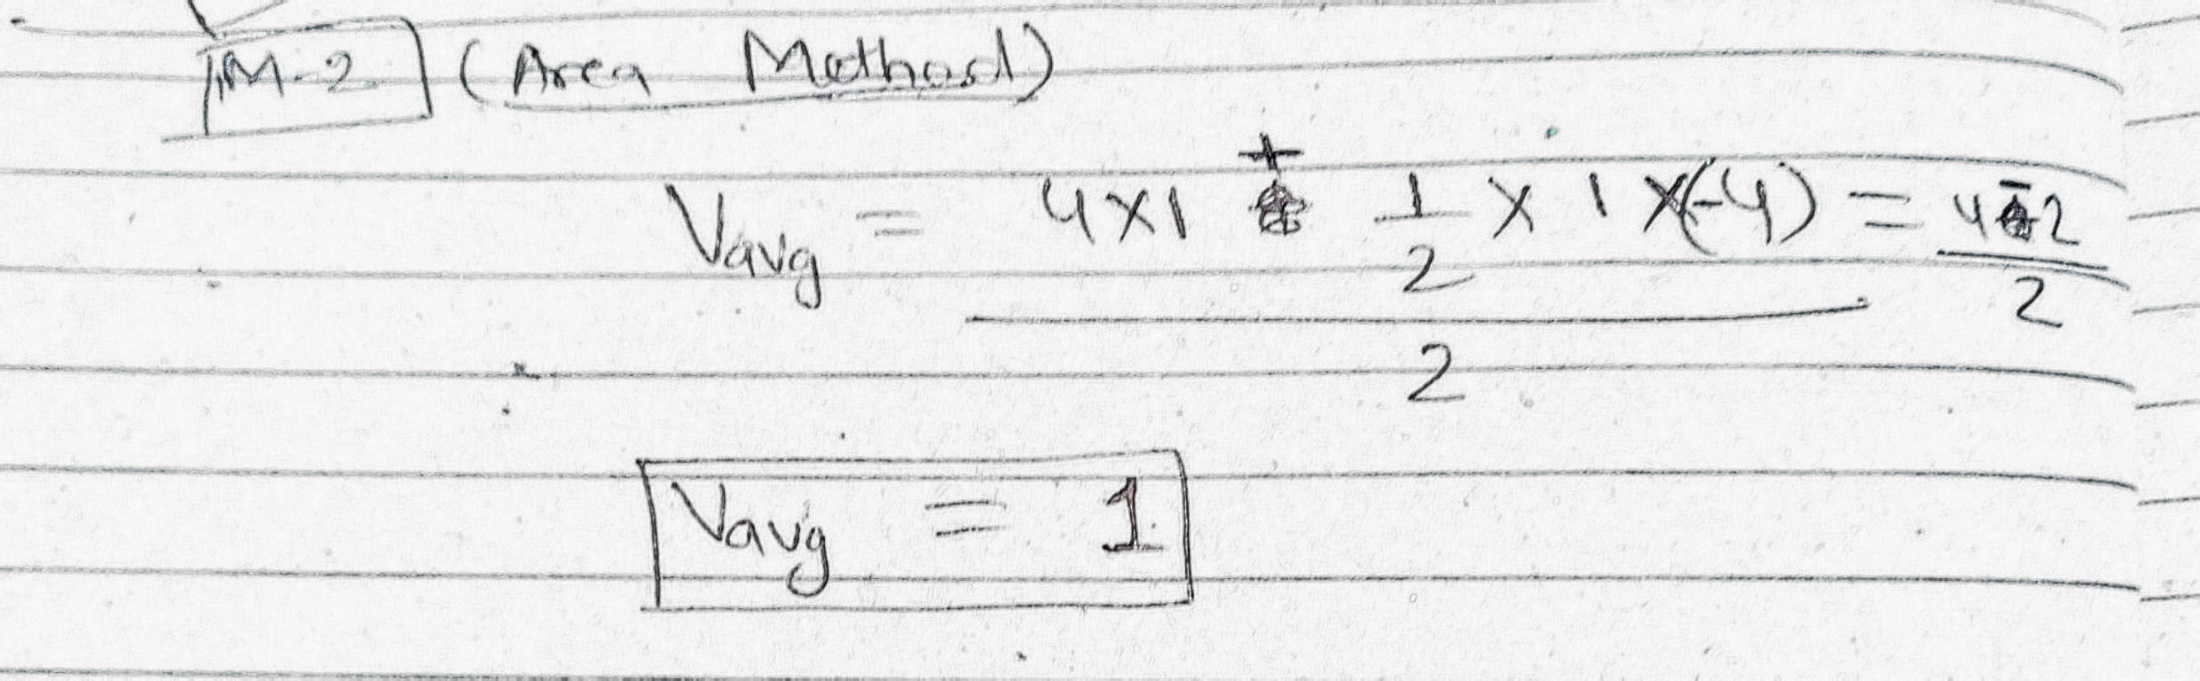 M-2 (Area Method)
Vavg = 4×1 + 1/2 × 1 ×(-4) = 4-2
2 2
Vavg = 1